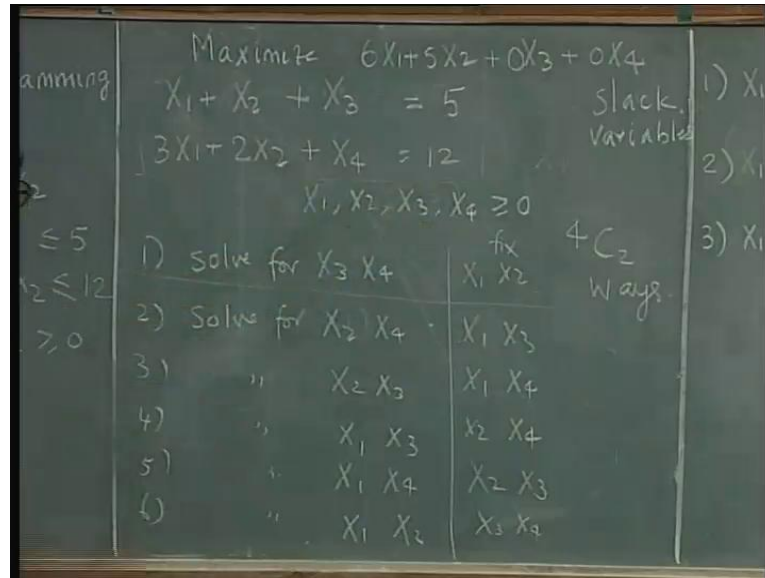 amming
≤ 5
x2 ≤ 12
≥ 0
Maximize 6X1+5X2+0X3+0X4
X1+ X2 + X3 = 5
3X1+2X2+X4 = 12
X1, X2, X3, X4 ≥0
Slack
variables
4C2
ways.
fix
1) Solve for X3 X4 X1 X2
2) Solve for X2 X4 X1 X3
3) " X2 X3 X1 X4
4) " X1 X3 X2 X4
5) " X1 X4 X2 X3
6) " X1 X2 X3 X4
1) X1
2) X1
3) X1